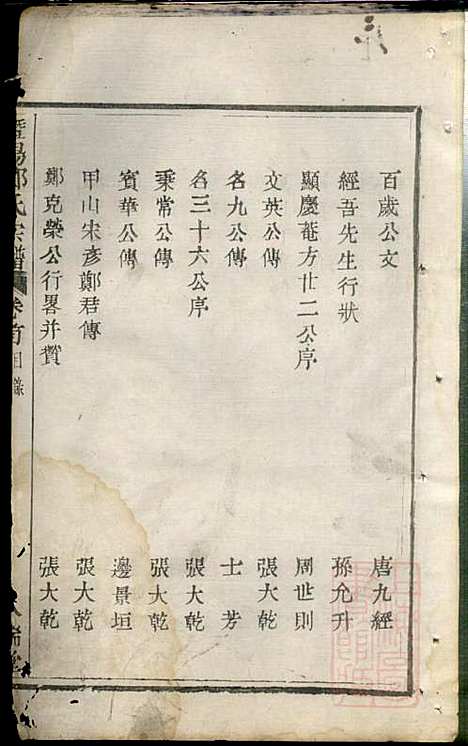 百歲公文 唐九經
經吾先生行狀 孫允升
顯慶菴方廿二公序 周世則
文英公傳 張大乾
名九公傳 士芳
名三十六公序 張大乾
秉常公傳 張大乾
賓華公傳 邊景垣
甲山宋彥鄭君傳 張大乾
鄭克榮公行畧并贊 張大乾
暨陽鄭氏宗譜 卷首目錄